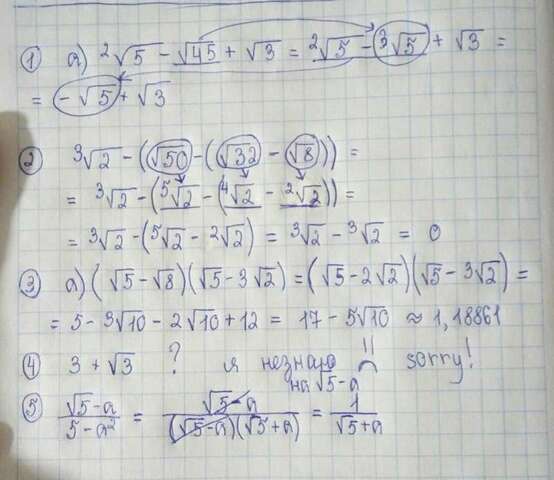 ① а) ²√5 - √45 + √3 = ²√5 - ³√5 + √3 =
= -√5 + √3
② ³√2 - (√50 - (√32 - √8)) =
= ³√2 - (⁵√2 - (⁴√2 - ²√2)) =
= ³√2 - (⁵√2 - ²√2) = ³√2 - ³√2 = 0
③ а) (√5 - √8)(√5 - 3√2) = (√5 - 2√2)(√5 - ³√2) =
= 5 - ³√10 - 2√10 + 12 = 17 - 5√10 ≈ 1,18861
④ 3 + √3 ? я незнаю sorry!
на √5-a
⑤ √5-a / 5-a² = √5-a / (√5-a)(√5+a) = 1 / √5+a